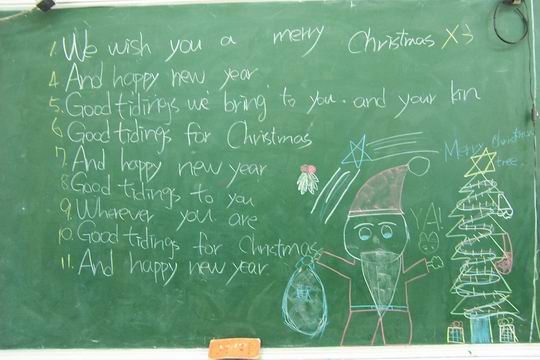 1. We wish you a merry Christmas X3
4. And happy new year
5. Good tidings we bring to you and your kin
6. Good tidings for Christmas
7. And happy new year
8. Good tidings to you
9. Wherever you are
10. Good tidings for Christmas
11. And happy new year
Merry Christmas
tree.
YA!